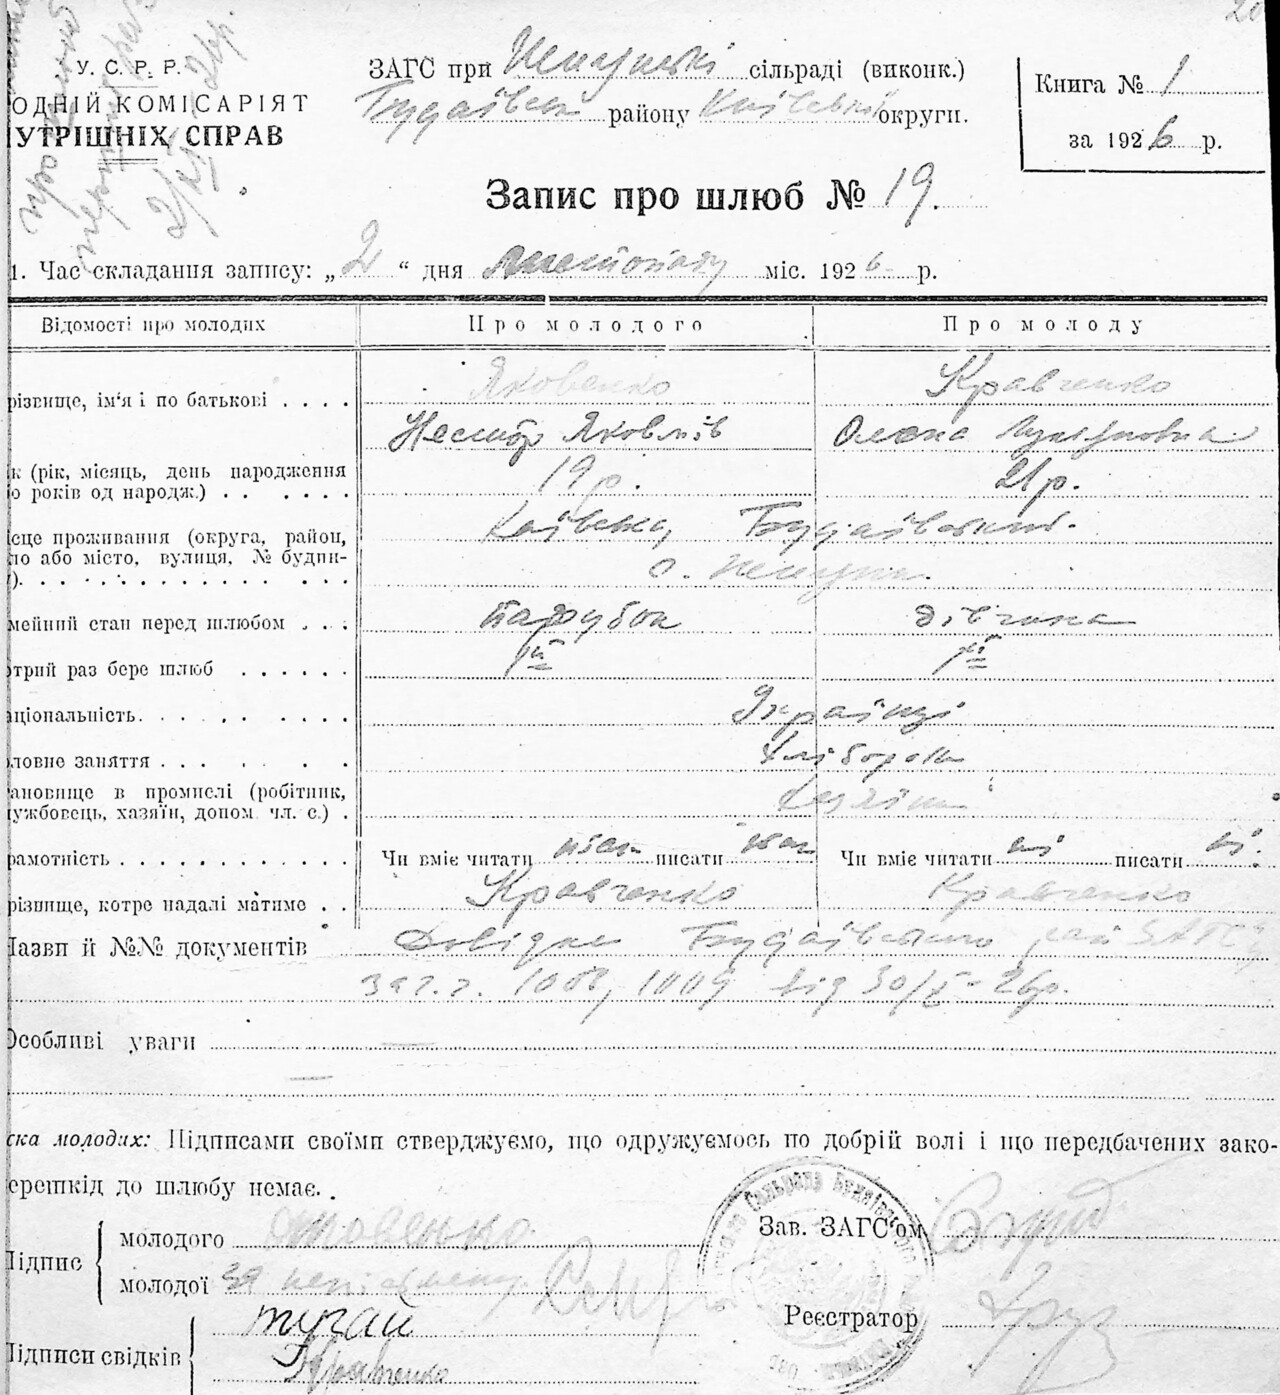 У. С. Р. Р.
ОДНІЙ КОМІСАРІЯТ
УТРІШНІХ СПРАВ
ЗАГС при сільраді (виконк.)
Будаївськ району Київської округи.
Книга № 1
за 1926 р.
Запис про шлюб № 19.
1. Час складання запису: „2“ дня листопаду міс. 1926 р.
Відомості про молодих
Про молодого
Про молоду
різвище, ім'я і по батькові . . . .
Яковенко
Кравченко
Нестор Яковлів
Олена Лукяновна
к (рік, місяць, день народження
о років од народж.) . . . . . .
19 р.
21 р.
сце проживання (округа, район,
ло або місто, вулиця, № будин-
). . . . . . . . . . . . . .
Київська, Будаївський.
с.
мейний стан перед шлюбом . . .
парубок
дівчина
отрий раз бере шлюб . . . . . .
1й
1й
аціональність. . . . . . . . . .
Українці
ловне заняття . . . . . . .
хлібороби
ановище в промислі (робітник,
ужбовець, хазяїн, допом. чл. с.) .
рамотність . . . . . . . . . . . .
Чи вміє читати писати
Чи вміє читати ні писати ні.
різвище, котре надалі матиме . .
Кравченко
Кравченко
Назви й №№ документів
Довідки Будаївського рай ЗАГС'у
за ч.ч. 1008, 1009 від 30/X - 26 р.
Особливі уваги —
—
ска молодих: Підписами своїми стверджуємо, що одружуємось по добрій волі і що передбачених зако-
ерешкід до шлюбу немає.
Підпис
молодого Яковенко
молодої за неписьменну
Зав. ЗАГС'ом
Реєстратор
Підписи свідків
Тугай
Кравченко